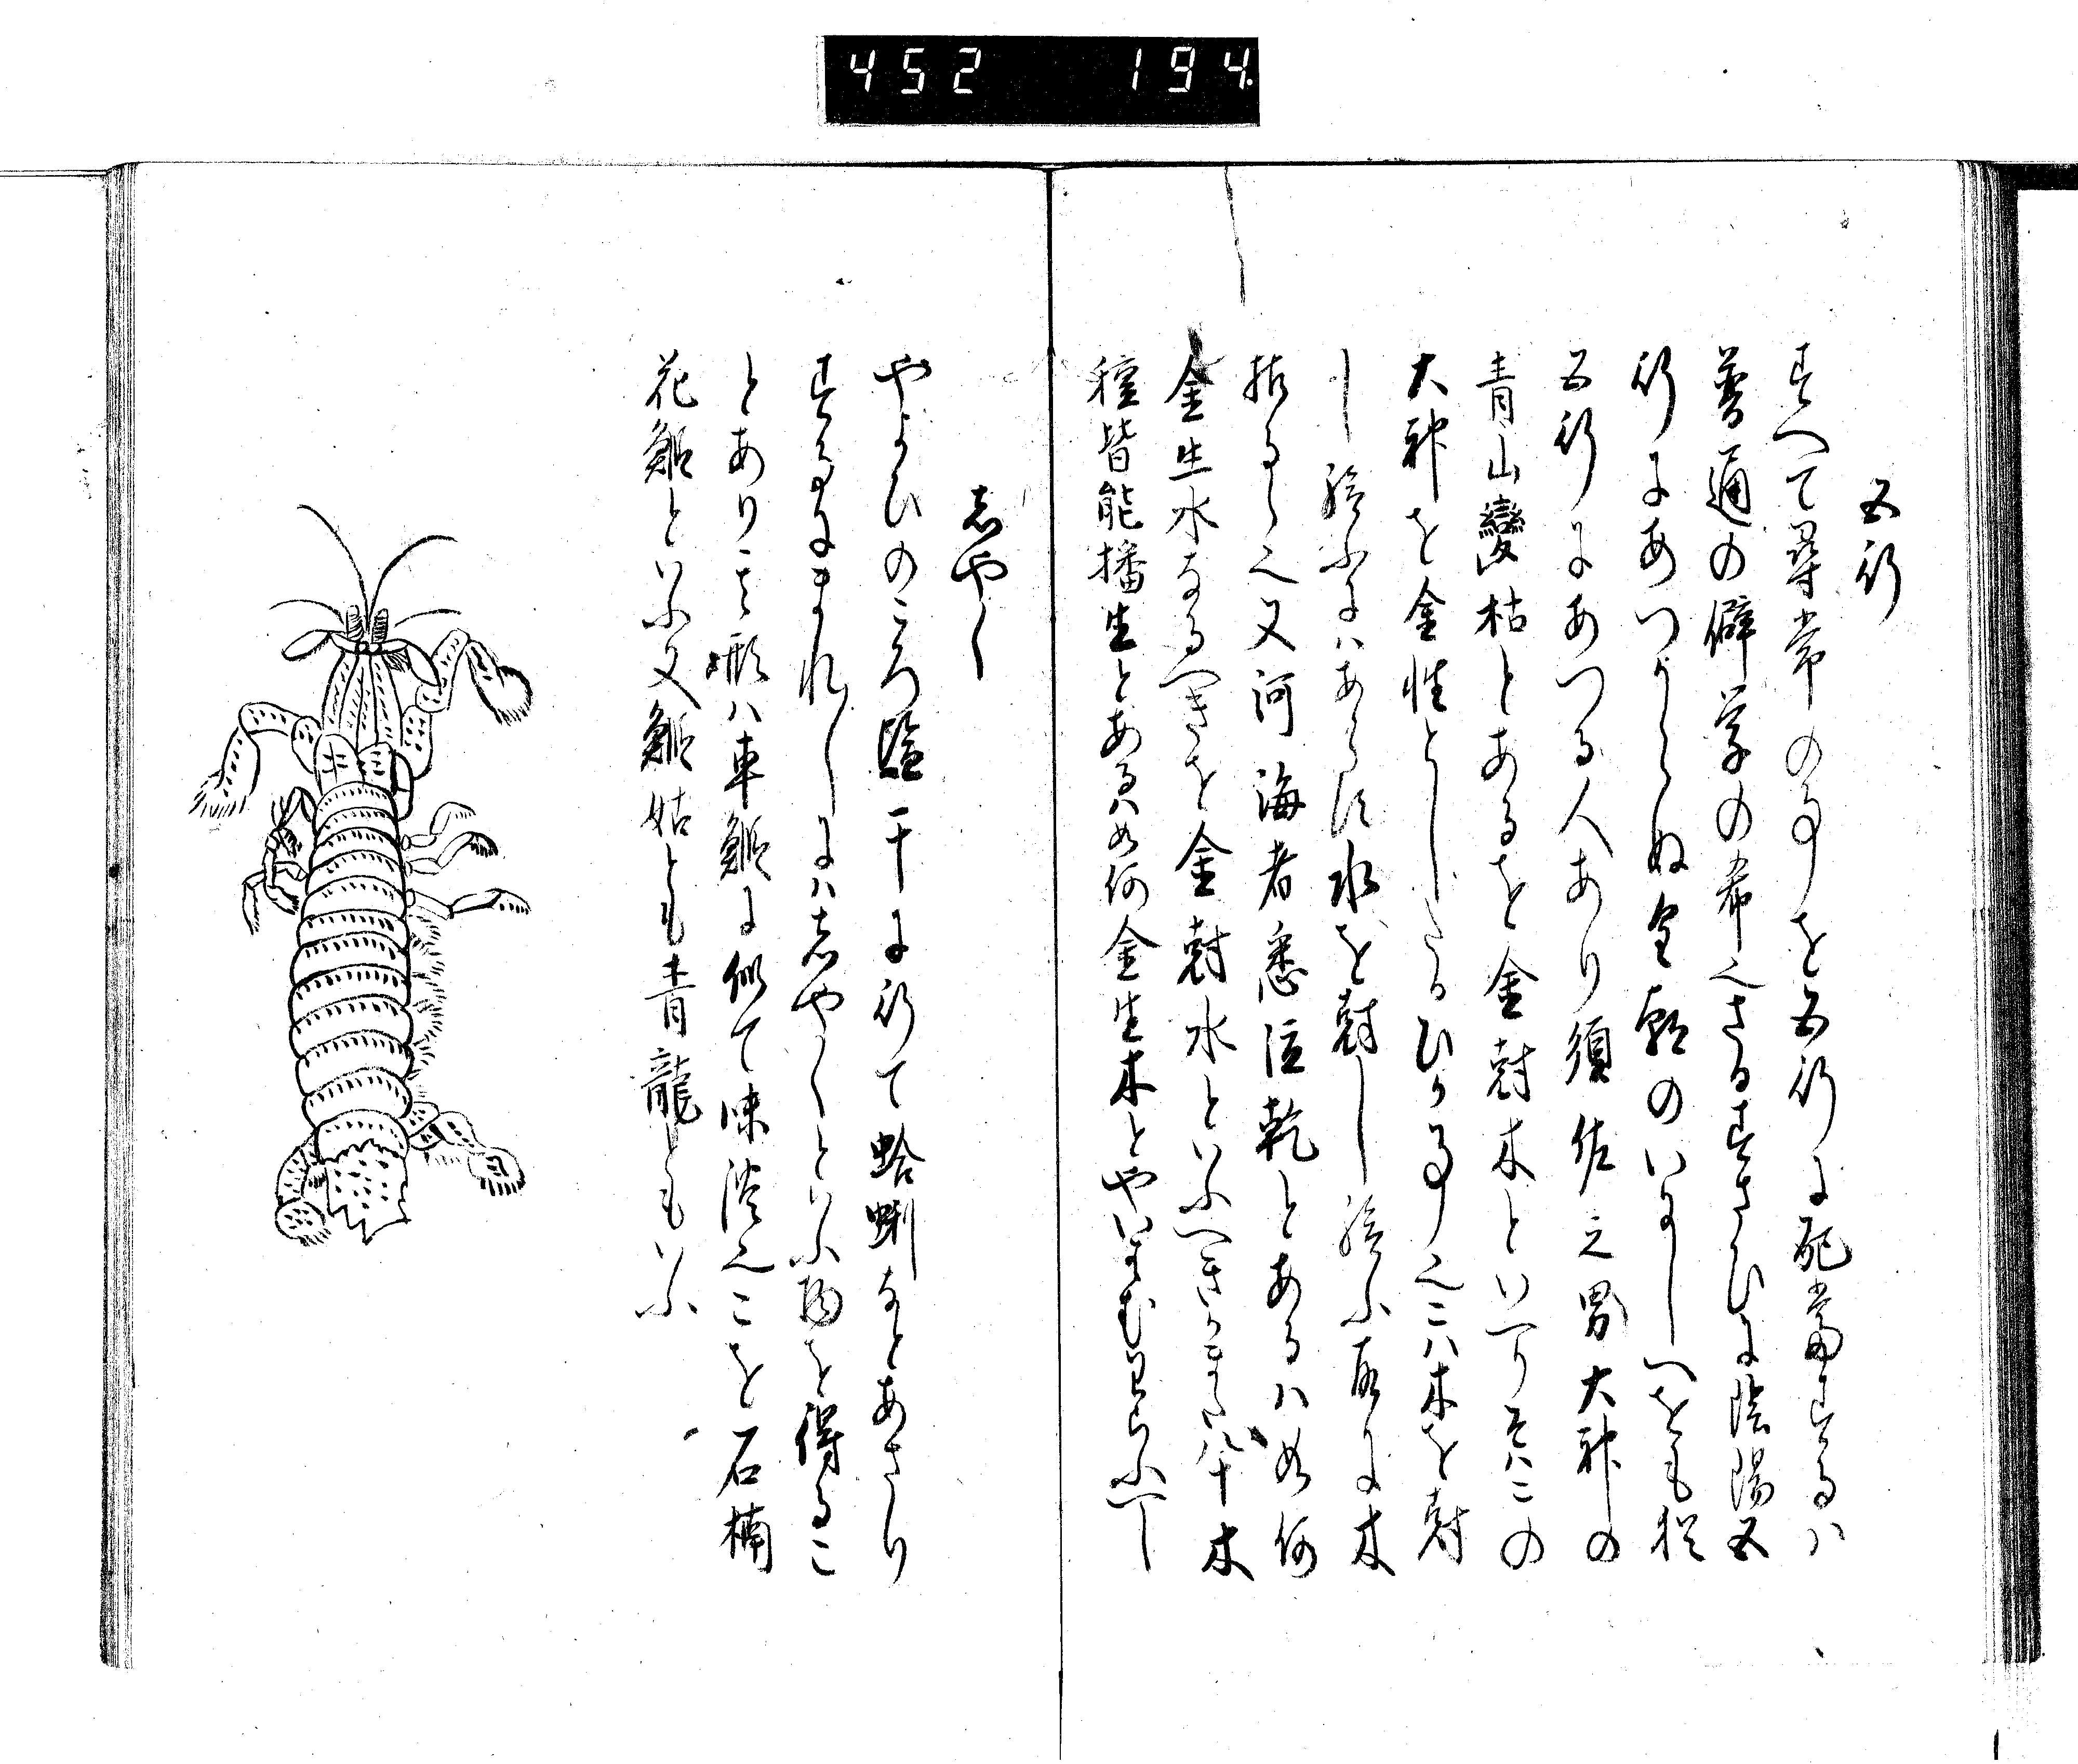 452 194
五行
すへて尋常の事を五行に配当するハ
普通の僻学の希えさるすさひに陰陽五
行にあつからぬ皇朝のいにしへをも押
五行にあつる人あり須佐之男大神の
青山變枯とあるを金尅木といへりそハこの
大神を金性としたるひか事也こハ木を尅
し給ふにハあらす水を尅し給ふ故に木
枯るゝ也又河海者悉泣乾とあるハ如何
金生水なるへきを金尅水といふへきか また八十木
種皆能播生とあるハ如何金生木とやいはむわらふへし
志やく
やよひのころ塩干に行て蛤蜊なとあさり
するにまれ〳〵にハ志やくといふ物を得るこ
とあり其形ハ車鰕に似て味淡也こを石楠
花鰕といふ又鰕姑とも青龍ともいふ